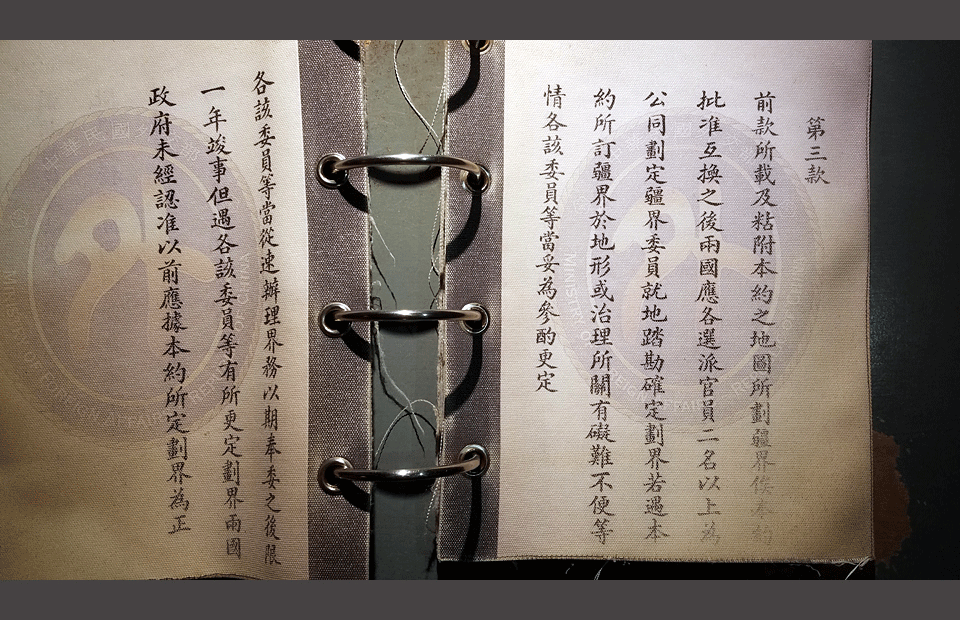 第三款
前款所載及粘附本約之地圖所劃疆界俟本約
批准互換之後兩國應各選派官員二名以上為
公同劃定疆界委員就地踏勘確定劃界若遇本
約所訂疆界於地形或治理所關有礙難不便等
情各該委員等當妥為參酌更定
各該委員等當從速辦理界務以期奉委之後限
一年竣事但遇各該委員等有所更定劃界兩國
政府未經認准以前應據本約所定劃界為正